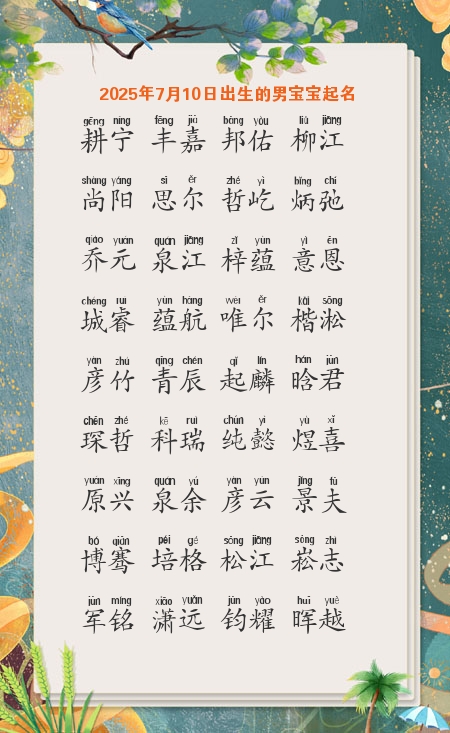 2025年7月10日出生的男宝宝起名
gēng níng fēng jiā bāng yòu liǔ jiāng
耕宁 丰嘉 邦佑 柳江
shàng yáng sī ěr zhé yì bǐng chí
尚阳 思尔 哲屹 炳弛
qiáo yuán quán jiāng zǐ yùn yì ēn
乔元 泉江 梓蕴 意恩
chéng ruì yùn háng wéi ěr kǎi sōng
城睿 蕴航 唯尔 楷淞
yàn zhú qīng chén qǐ lín hán jūn
彦竹 青辰 起麟 晗君
chēn zhé kē ruì chún yì yù xǐ
琛哲 科瑞 纯懿 煜喜
yuán xīng quán yú yàn yún jǐng fū
原兴 泉余 彦云 景夫
bó qiān péi gé sōng jiāng sōng zhì
博骞 培格 松江 崧志
jūn míng xiāo yuǎn jūn yào huī yuè
军铭 潇远 钧耀 晖越